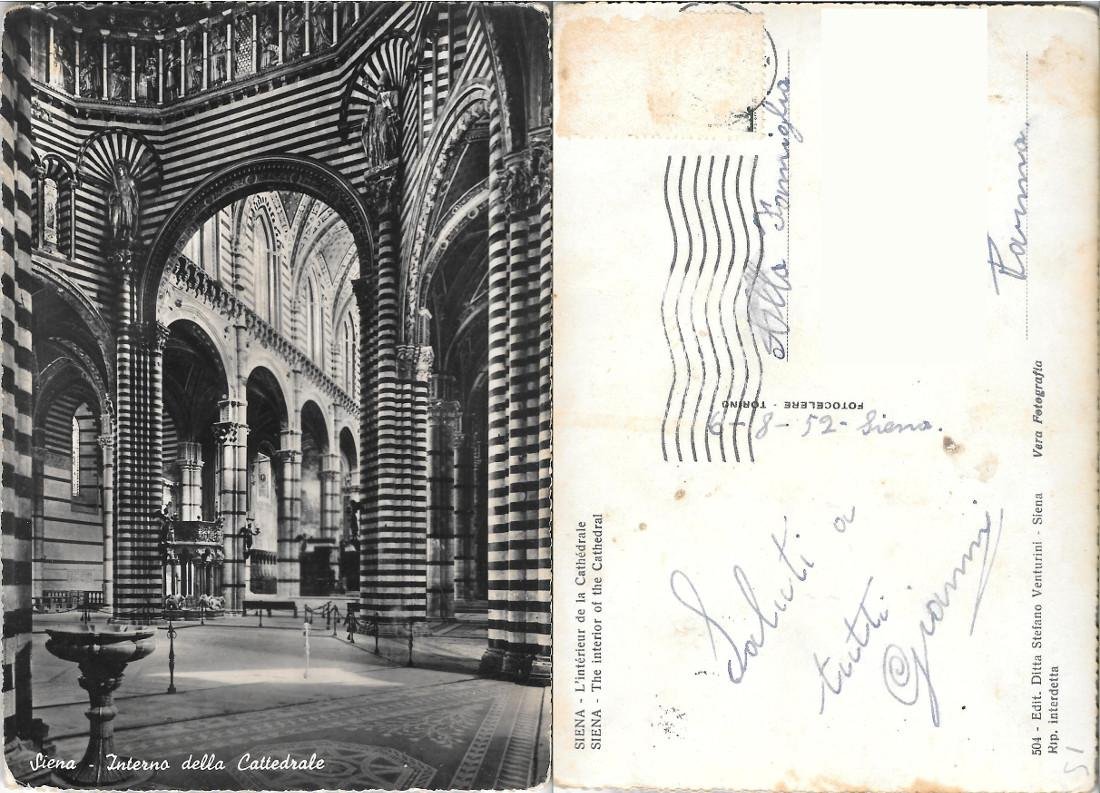 Siena - Interno della Cattedrale
SIENA - L'intérieur de la Cathédrale
SIENA - The interior of the Cathedral
6-8-52- Siena.
Saluti a
tutti
Gianni
Famiglia
Parma.
FOTOCELERE - TORINO
504 - Edit. Ditta Stefano Venturini - Siena Vera Fotografia
Rip. interdetta
51